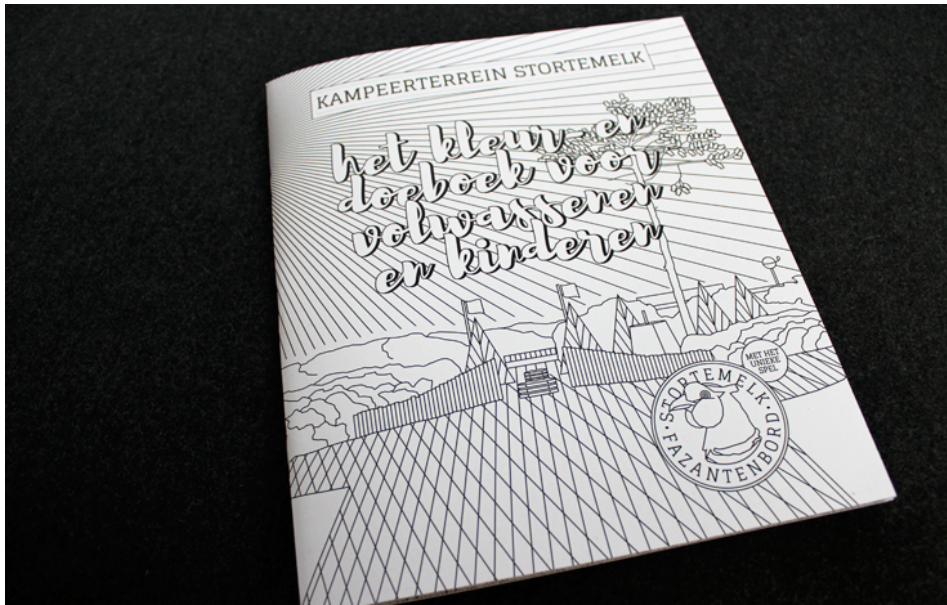 KAMPEERTERREIN STORTEMELK
het kleur- en
doeboek voor
volwassenen
en kinderen
MET HET
UNIEKE
SPEL
STORTEMELK·
FAZANTENBORD·